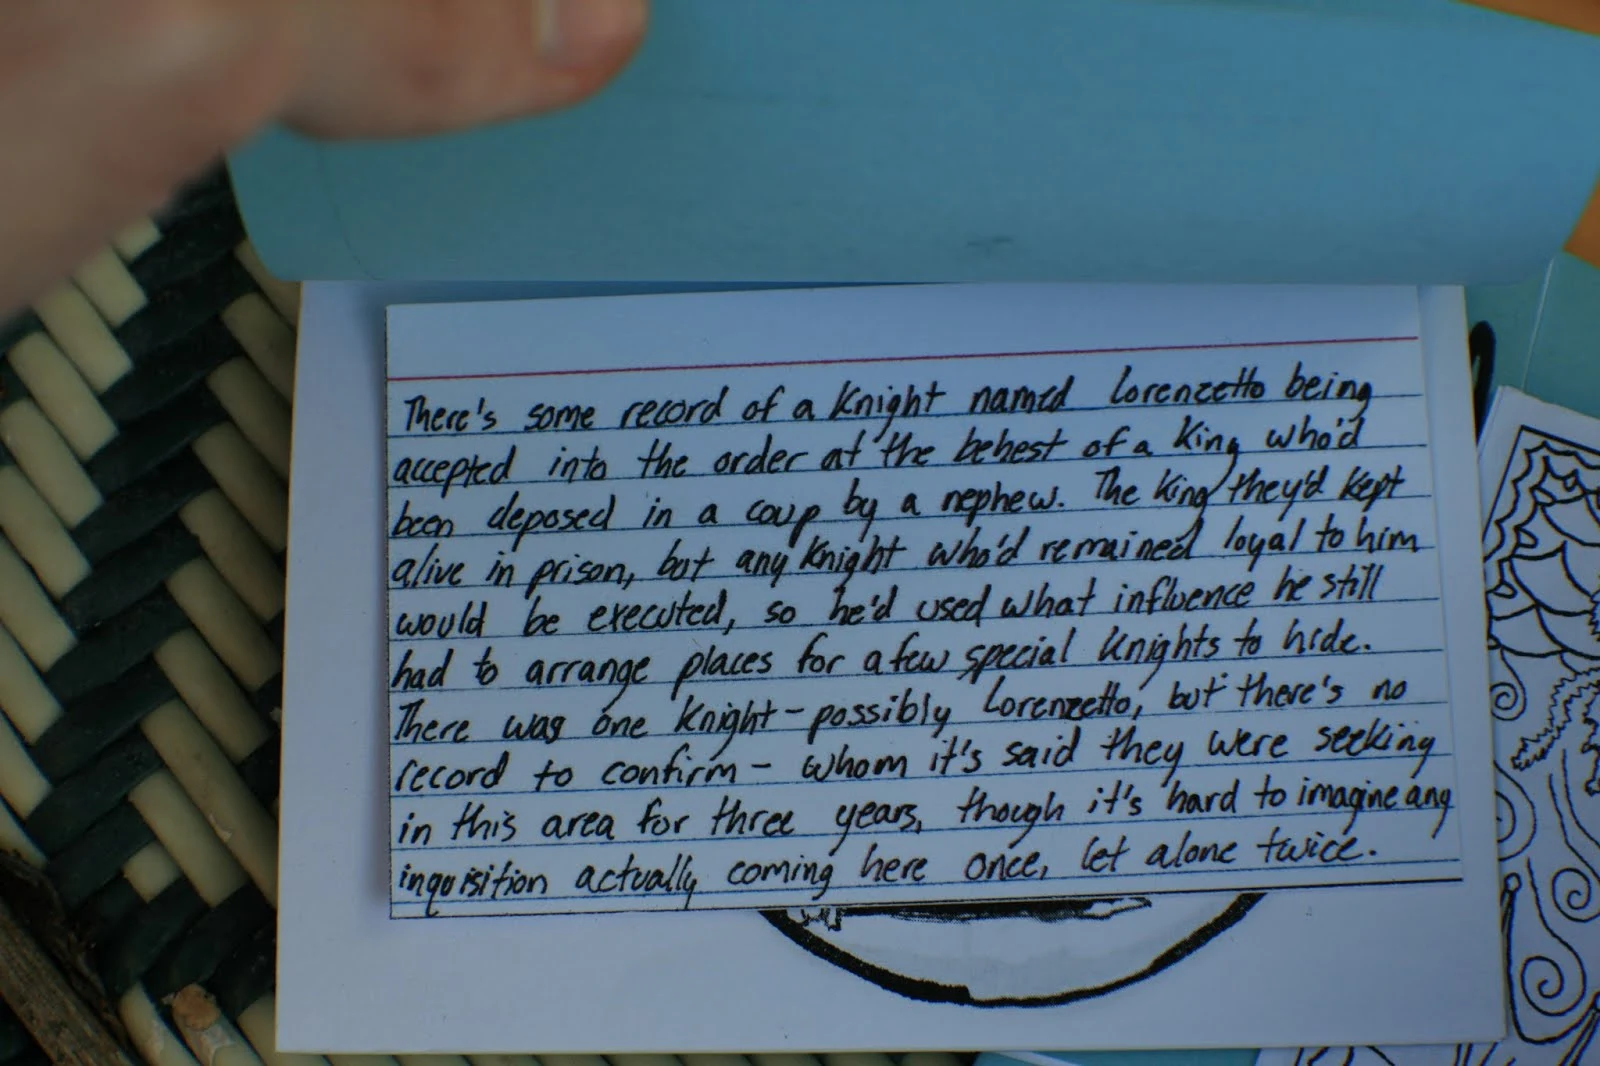 There's some record of a Knight named Lorenzetto being
accepted into the order at the behest of a King who'd
been deposed in a coup by a nephew. The King they'd kept
alive in prison, but any Knight who'd remained loyal to him
would be executed, so he'd used what influence he still
had to arrange places for a few special Knights to hide.
There was one Knight - possibly Lorenzetto, but there's no
record to confirm - whom it's said they were seeking
in this area for three years, though it's hard to imagine any
inquisition actually coming here once, let alone twice.